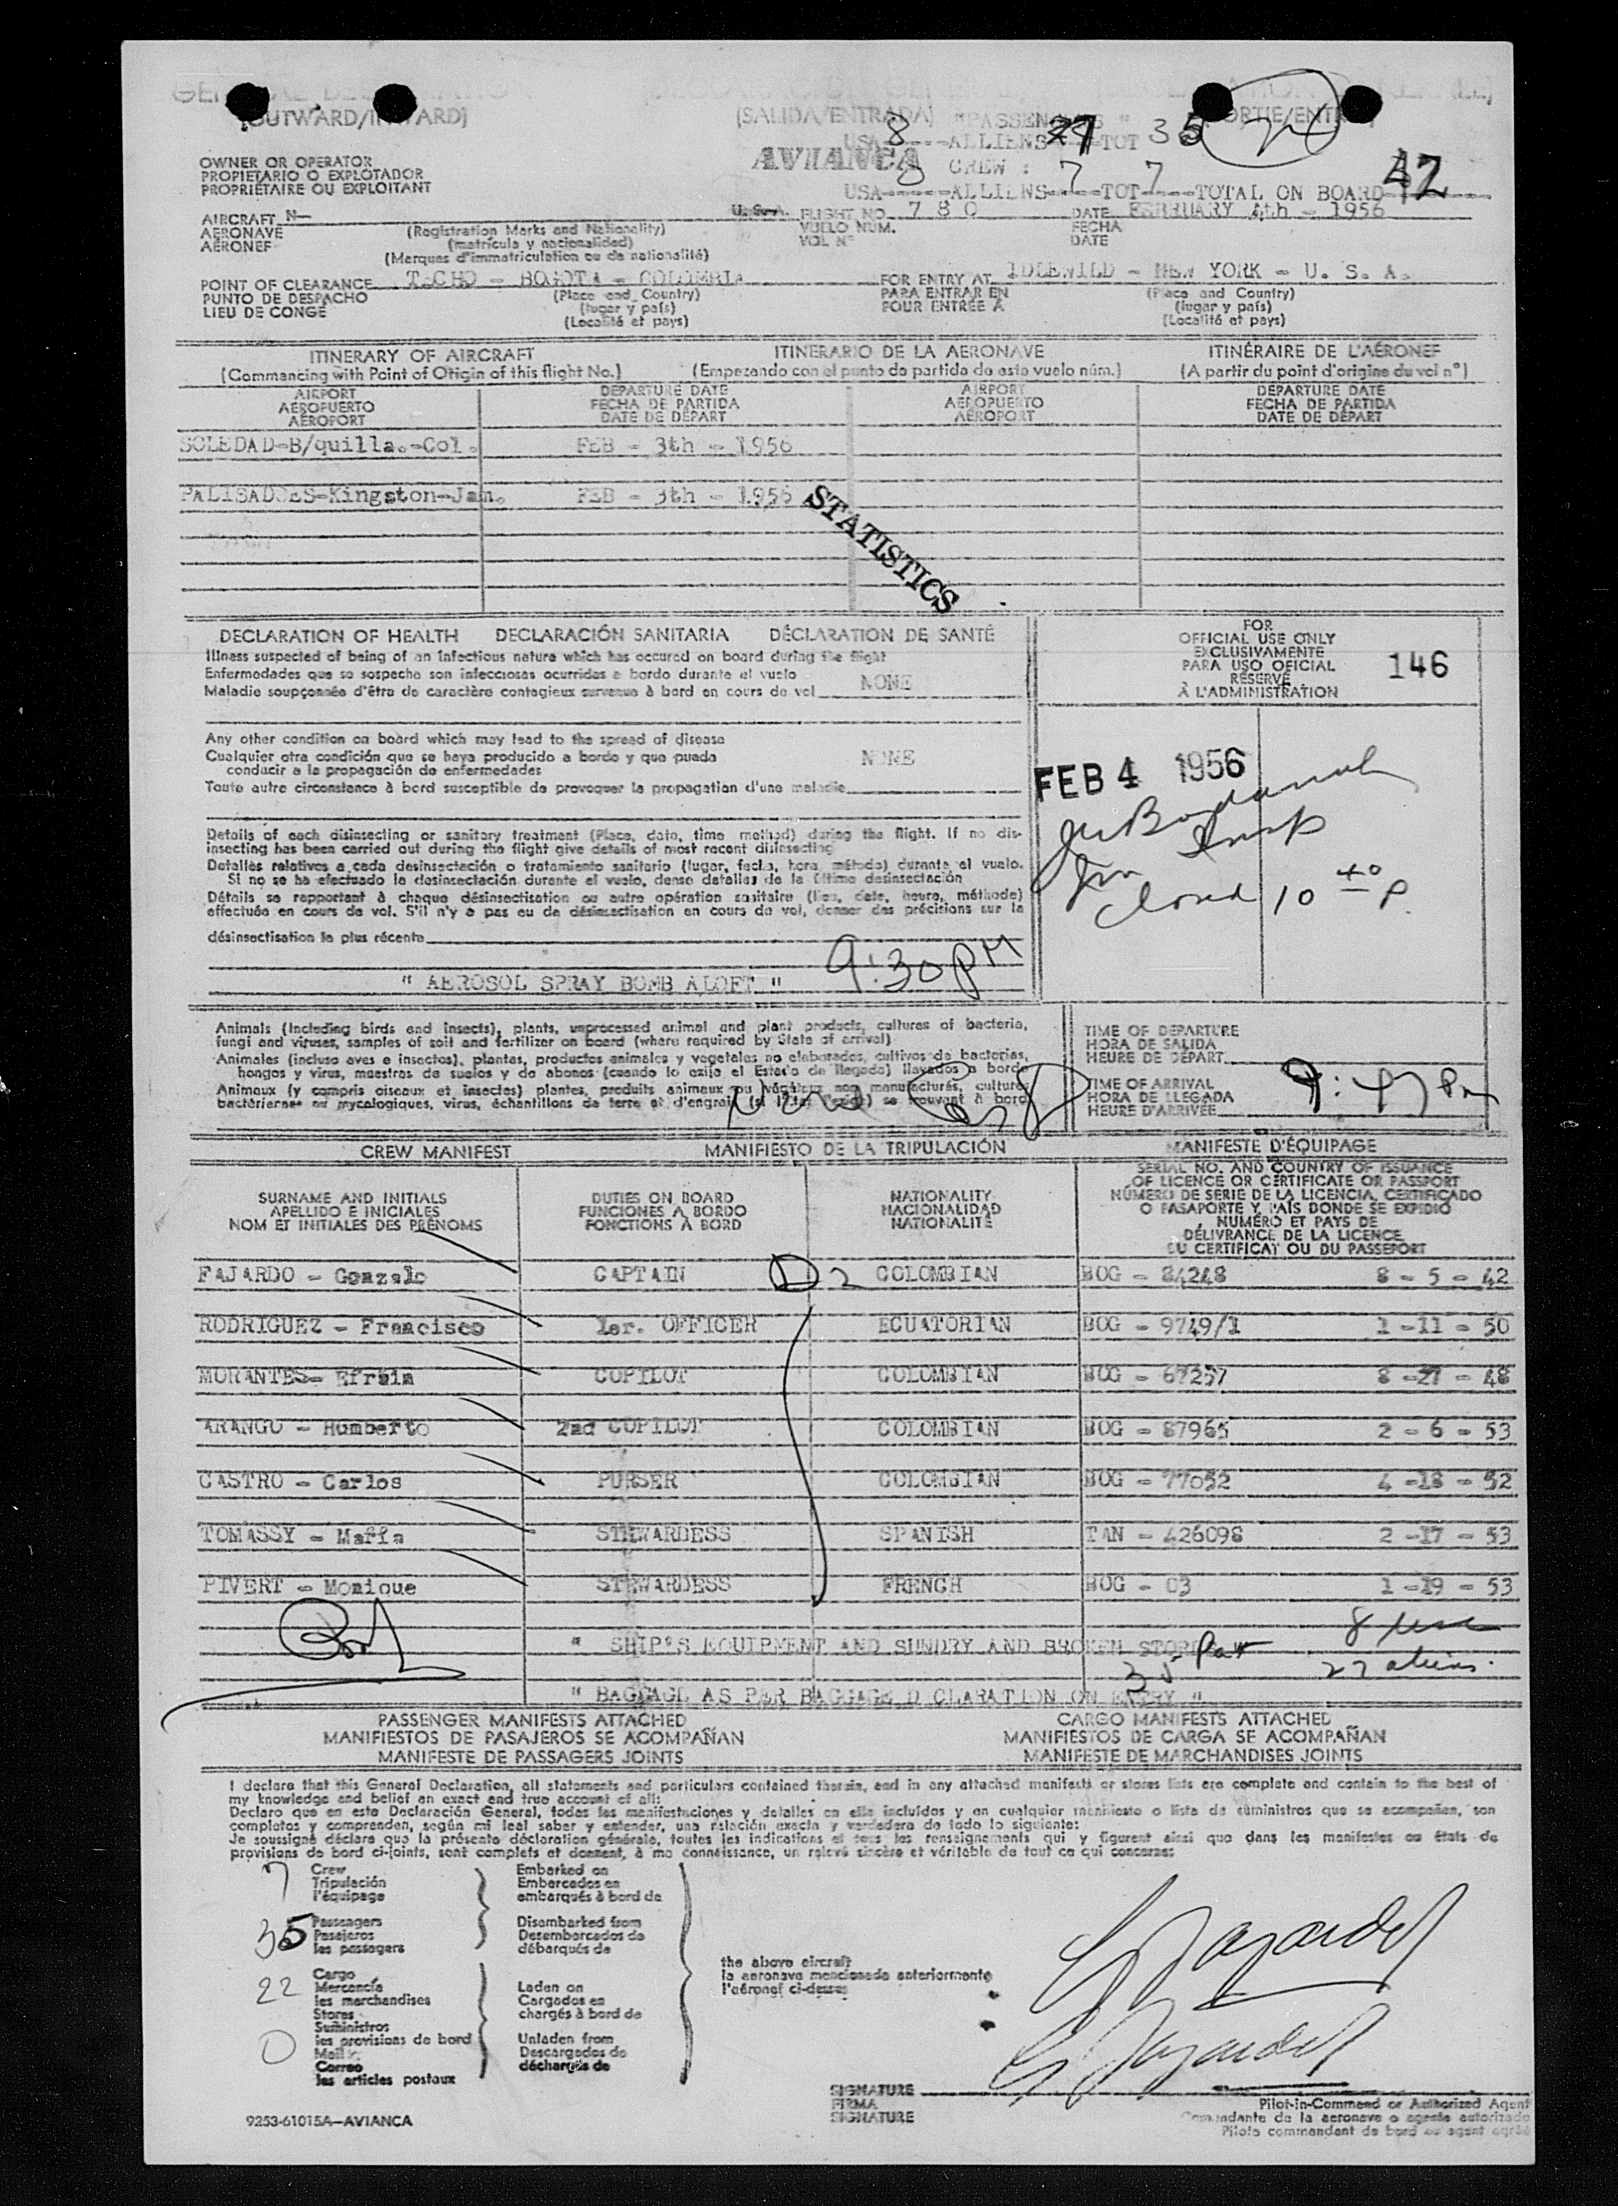 (OUTWARD/INWARD) (SALIDA/ENTRADA) (SORTIE/ENTRÉE)
"PASSENGERS"
USA 8 ---ALLIENS 27 --TOT 35
AVIANCA
CREW :
USA------ALLIENS 7 ----TOT 7 ----TOTAL ON BOARD 42
OWNER OR OPERATOR
PROPIETARIO O EXPLOTADOR
PROPRIÉTAIRE OU EXPLOITANT
AIRCRAFT N- U.S.A. FLIGHT NO. 780 DATE FEBRUARY 4th - 1956
AERONAVE (Registration Marks and Nationality) VUELO NUM. FECHA
AÉRONEF (matrícula y nacionalidad) VOL Nº DATE
(Marques d'immatriculation ou de nationalité)
POINT OF CLEARANCE TECHO - BOGOTA - COLOMBIA FOR ENTRY AT IDLEWILD - NEW YORK - U. S. A.
PUNTO DE DESPACHO (Place and Country) PARA ENTRAR EN (Place and Country)
LIEU DE CONGÉ (lugar y país) POUR ENTRÉE À (lugar y país)
(Localité et pays) (Localité et pays)
ITINERARY OF AIRCRAFT ITINERARIO DE LA AERONAVE ITINÉRAIRE DE L'AÉRONEF
(Commencing with Point of Otigin of this flight No.) (Empezando con el punto de partida de este vuelo núm.) (A partir du point d'origine du vol nº)
AIRPORT DEPARTURE DATE AIRPORT DEPARTURE DATE
AEROPUERTO FECHA DE PARTIDA AEROPUERTO FECHA DE PARTIDA
AÉROPORT DATE DE DÉPART AÉROPORT DATE DE DÉPART
SOLEDAD-B/quilla.-Col. FEB - 3th - 1956
PALISADOES-Kingston-Jam. FEB - 3th - 1956
STATISTICS
DECLARATION OF HEALTH DECLARACIÓN SANITARIA DÉCLARATION DE SANTÉ
Illness suspected of being of an infectious nature which has occured on board during the flight
Enfermedades que se sospecha son infecciosas ocurridas a bordo durante el vuelo
Maladie soupçonnée d'être de caractère contagieux survenue à bord en cours de vol NONE
Any other condition on board which may lead to the spread of disease
Cualquier otra condición que se haya producido a bordo y que pueda NONE
conducir a la propagación de enfermedades
Toute autre circonstance à bord susceptible de provoquer la propagation d'une maladie
Details of each disinsecting or sanitary treatment (Place, date, time method) during the flight. If no dis-
insecting has been carried out during the flight give details of most recent disinsecting
Detalles relativos a cada desinsectación o tratamiento sanitario (lugar, fecha, hora método) durante el vuelo.
Si no se ha efectuado la desinsectación durante el vuelo, dense detalles de la última desinsectación
Détails se rapportant à chaque désinsectisation ou autre opération sanitaire (lieu, date, heure, méthode)
effectuée en cours de vol. S'il n'y a pas eu de désinsectisation en cours de vol, donner des précisions sur la
désinsectisation la plus récente
" AEROSOL SPRAY BOMB ALOFT " 9:30 PM
FOR
OFFICIAL USE ONLY
EXCLUSIVAMENTE
PARA USO OFICIAL
RÉSERVÉ
À L'ADMINISTRATION
146
FEB 4 1956
Insp
Closed 10 40 P.
Animals (Including birds and insects), plants, unprocessed animal and plant products, cultures of bacteria,
fungi and viruses, samples of soil and fertilizer on board (where required by State of arrival)
Animales (incluso aves e insectos), plantas, productos animales y vegetales no elaborados, cultivos de bacterias,
hongos y virus, muestras de suelos y de abonos (cuando lo exija el Estado de llegada) llevados a bordo
Animaux (y compris oiseaux et insectes) plantes, produits animaux ou végétaux non manufacturés, cultures
bactériennes ou mycologiques, virus, échantillons de terre et d'engrais (si l'État l'exige) se trouvant à bord
TIME OF DEPARTURE
HORA DE SALIDA
HEURE DE DÉPART
TIME OF ARRIVAL
HORA DE LLEGADA
HEURE D'ARRIVÉE 9:47 Pm
CREW MANIFEST MANIFIESTO DE LA TRIPULACIÓN MANIFESTE D'ÉQUIPAGE
SURNAME AND INITIALS DUTIES ON BOARD NATIONALITY SERIAL NO. AND COUNTRY OF ISSUANCE
APELLIDO E INICIALES FUNCIONES A BORDO NACIONALIDAD OF LICENCE OR CERTIFICATE OR PASSPORT
NOM ET INITIALES DES PRÉNOMS FONCTIONS À BORD NATIONALITÉ NÚMERO DE SERIE DE LA LICENCIA, CERTIFICADO
O PASAPORTE Y PAÍS DONDE SE EXPIDIÓ
NUMÉRO ET PAYS DE
DÉLIVRANCE DE LA LICENCE
DU CERTIFICAT OU DU PASSEPORT
FAJARDO - Gonzalo CAPTAIN D 2 COLOMBIAN BOG - 84248 8 - 5 - 42
RODRIGUEZ - Francisco 1er. OFFICER ECUATORIAN BOG - 9749/1 1 -11 - 50
MORANTES- Efrain COPILOT COLOMBIAN BOG - 67257 8 -27 - 48
ARANGO - Humberto 2nd COPILOT COLOMBIAN BOG - 87965 2 - 6 - 53
CASTRO - Carlos PURSER COLOMBIAN BOG - 77052 4 -18 - 52
TOMASSY - María STEWARDESS SPANISH TAN - 426098 2 -17 - 53
PIVERT - Monique STEWARDESS FRENCH BOG - 03 1 -19 - 53
" SHIP'S EQUIPMENT AND SUNDRY AND BROKEN STORES "
35 8 27 aliens.
" BAGGAGE AS PER BAGGAGE DECLARATION ON ENTRY "
PASSENGER MANIFESTS ATTACHED CARGO MANIFESTS ATTACHED
MANIFIESTOS DE PASAJEROS SE ACOMPAÑAN MANIFIESTOS DE CARGA SE ACOMPAÑAN
MANIFESTE DE PASSAGERS JOINTS MANIFESTE DE MARCHANDISES JOINTS
I declare that this General Declaration, all statements and particulars contained therein, and in any attached manifests or stores lists are complete and contain to the best of
my knowledge and belief an exact and true account of all:
Declaro que en esta Declaración General, todas las manifestaciones y detalles en ella incluidos y en cualquier manifiesto o lista de suministros que se acompañen, son
completos y comprenden, según mi leal saber y entender, una relación exacta y verdadera de todo lo siguiente:
Je soussigné déclare que la présente déclaration générale, toutes les indications et tous les renseignements qui y figurent ainsi que dans les manifestes ou états de
provisions de bord ci-joints, sont complets et donnent, à ma connaissance, un relevé sincère et véritable de tout ce qui concerne:
7 Crew Embarked on
Tripulación Embarcados en
l'équipage embarqués à bord de
35 Passengers Disembarked from
Pasajeros Desembarcados de
les passagers débarqués de
the above aircraft
la aeronave mencionada anteriormente
l'aéronef ci-dessus
22 Cargo
Mercancía Laden on
les marchandises Cargados en
Stores chargés à bord de
Suministros
les provisions de bord Unladen from
0 Mail Descargados de
Correo déchargés de
les articles postaux
SIGNATURE
FIRMA
SIGNATURE
Pilot-in-Command or Authorized Agent
Comandante de la aeronave o agente autorizado
Pilote commandant de bord ou agent agréé
9253-61015A—AVIANCA